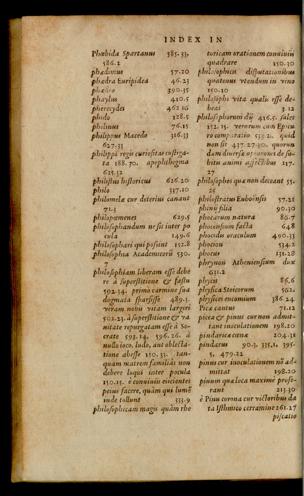 INDEX IN
Phœbida Spartanus 385.33.
586.2
phædimus 57.20
phædra Euripidea 46.23
phædro 390.35
phaylus 410.5
pherecydes 462.16
phido 328.5
philinus 76.15
philippus Macedo 316.13
627.33
philippi regis curiositas castiga-
ta 188.70. apophthegma
625.32
philistus historicus 626.20
philo 317.10
philomela cur deterius canant
72.3
philopœmenes 629.5
philosophandum ne sit inter po
cula 149.6
philosophari qui possint 152.8
philosophia Academiorū 530.
7
philosophiam liberam esse debe
re à superstitione & fastu
592.14. primo carmine sua
dogmata sparsisse 489.3.
veram nobis vitam largiri
502.23. à superstitione & va
nitate repurgatam esse à So-
crate 593.14. 596.26. à
nullo loco, ludo, aut oblecta-
tione abesse 150.33. tan-
quam matrem familiâs non
debere loqui inter pocula
150.15. è conuiuiis eiicientes
peius facere, quàm qui lumē
inde tollunt 533.9
philosophicam magis quàm rhe
toricam orationem conuiuiis
quadrare 150.10
philosophicis disputationibus
quatenus vtendum in vino
150.10
philosophi vita qualis esse de-
beat 3.12
philosophorum dij 416.5. sales
132.15. verorum cum Epicu
ro comparatio
non sit 437.27.30. quorun-
dam
bitu animi 117.
27
philosophos qua non deceant 55.
25
philostratus Euboënsis 57.21
phinei filia 90.30
phocarum natura 80.7
phocensium facta 648
phocidis oraculum 400.33
phocion 534.2
phocus 131.28
phrynon Atheniensium dux
631.2
phryxi 85.6
physica Stoicorum 562.
physici encomium 386.24
Pica canius 71.12
picea & pinus cur non admit-
tant inoculationem 198.20
pindarica cœna 204.31
pindarus 90.3. 335.1. 395.
5. 479.22
pinus cur inoculationem nō ad-
mittat 198.20
pinum quæ loca maximè profe-
rant 213.30
è Pinu corona cur victoribus da
ta Isthmico certamine 261.27
piscatio